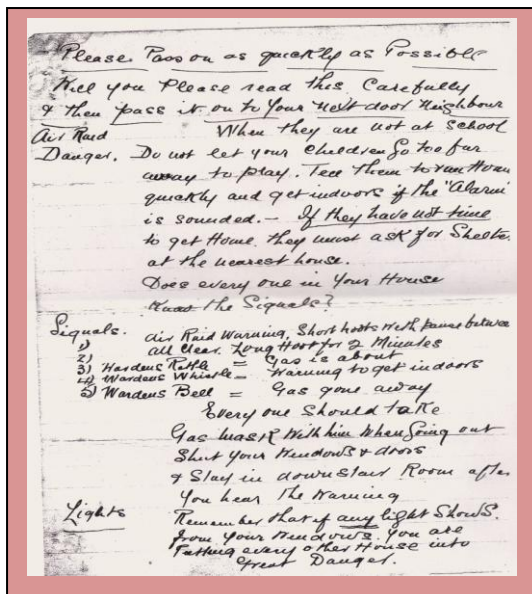 Please. Pass on as quickly as Possible
Will you Please read this Carefully
& then pass it on to Your next door Neighbour
Air Raid When they are not at school
Danger. Do not let your Children Go too far
away to play. Tell them to run Home
quickly and get indoors if the "Alarm"
is sounded. - If they have not time
to get Home. they must ask for Shelter
at the nearest house.
Does every one in Your House
Know the Signals?
Signals.
1) Air Raid Warning, Short hoots With Pause between
2) All Clear. Long Hoot for 2 Minutes
3) Wardens Rattle = Gas is about
4) Wardens Whistle = Warning to get indoors
5) Wardens Bell = Gas gone away
Every one Should take
Gas Mask With him When Going out
Shut Your Windows & doors
& Stay in downstair Room after
You hear The Warning
Lights Remember that if any light Shows.
from Your Windows. You are
Putting every other House into
Great Danger.